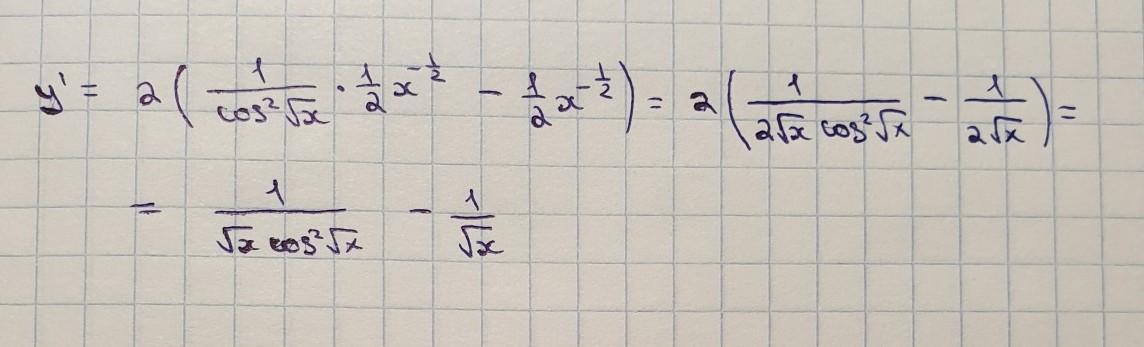 y' = 2 ( 1/(cos²√x) · 1/2 x^(-1/2) - 1/2 x^(-1/2) ) = 2 ( 1/(2√x cos²√x) - 1/(2√x) ) =
= 1/(√x cos²√x) - 1/√x